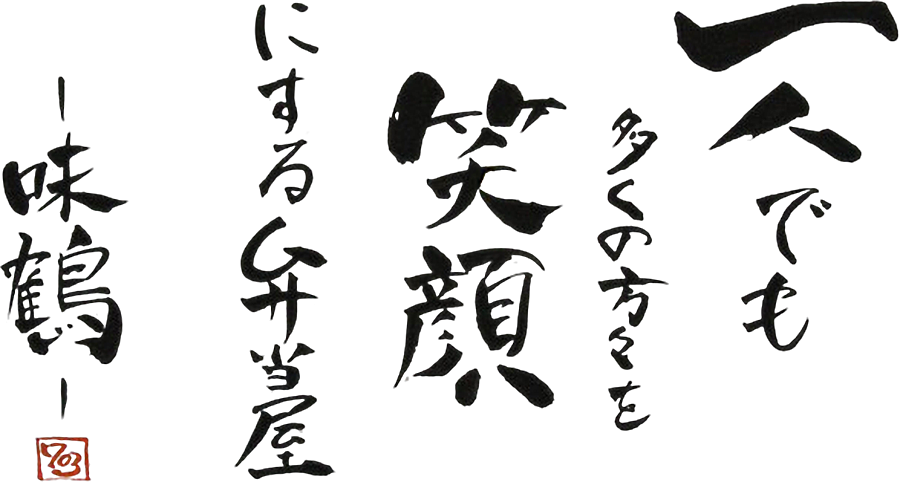 一人でも
多くの方々を
笑顔
にする弁当屋
ー味鶴ー
703